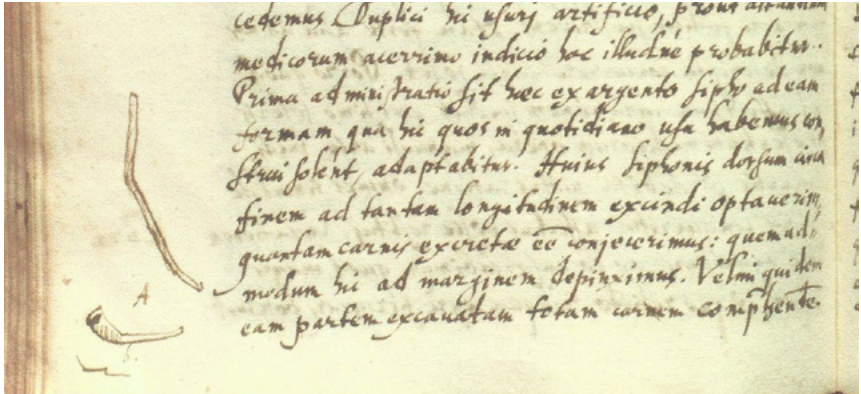 cedemus. Duplici hi usurj artificio, prout
medicorum acerrimo indicio hoc illudué probabitur.
Prima administratio sit haec ex argento sipho ad eam
formam qua hi quos in quotidiano usu habemus con,
strui solent, adaptabitur. Huius siphonis dorsum circa
finem ad tantam longitudinem excindi optaverim,
quantam carnis excretae eē conjecerimus: quemad,
modum hic ad marginem depinximus. Velim quidem
eam partem excavatam totam carnem
A
b.